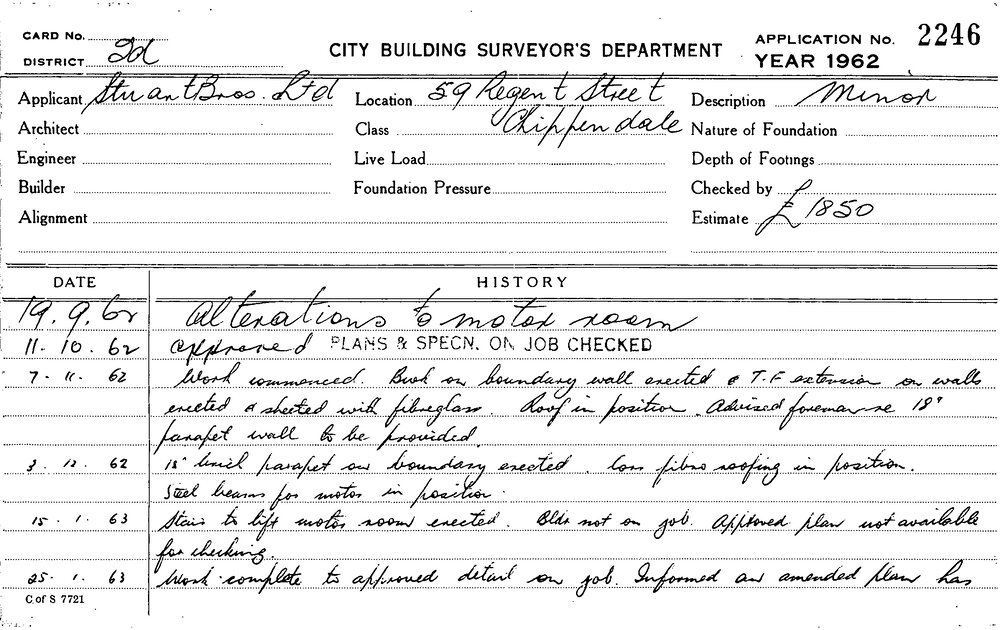 CARD No.
DISTRICT 2d
CITY BUILDING SURVEYOR'S DEPARTMENT
APPLICATION No. 2246
YEAR 1962
Applicant Stuart Bros. Ltd
Location 59 Regent Street
Chippendale
Description Minor
Architect
Class
Nature of Foundation
Engineer
Live Load
Depth of Footings
Builder
Foundation Pressure
Checked by
Alignment
Estimate £1850
DATE
HISTORY
19.9.62 Alterations to motor room
11.10.62 approved PLANS & SPECN. ON JOB CHECKED
7.11.62 Work commenced. Brick on boundary wall erected & T.F extension on walls
erected & sheeted with fibreglass. Roof in position. Advised foreman re 18"
parapet wall to be provided.
3.12.62 18" brick parapet on boundary erected. Corr fibro roofing in position.
Steel beams for motor in position.
15.1.63 Stair to lift motor room erected. Bldr not on job. Approved plan not available
for checking.
25.1.63 Work complete to approved detail on job. Informed an amended plan has
C of S 7721